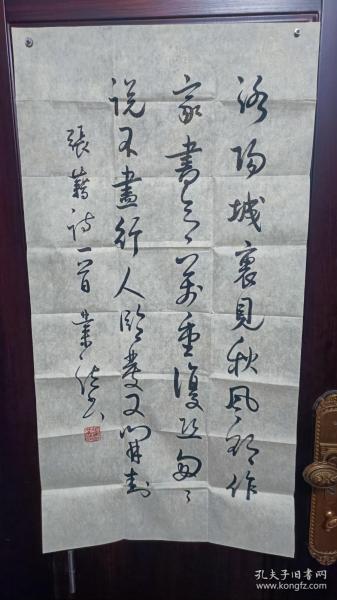 洛阳城裏見秋风欲作
家書意萬重復恐匆々
説不盡行人臨發又開封
張籍詩一首
孔夫子旧书网
www.kongfz.com